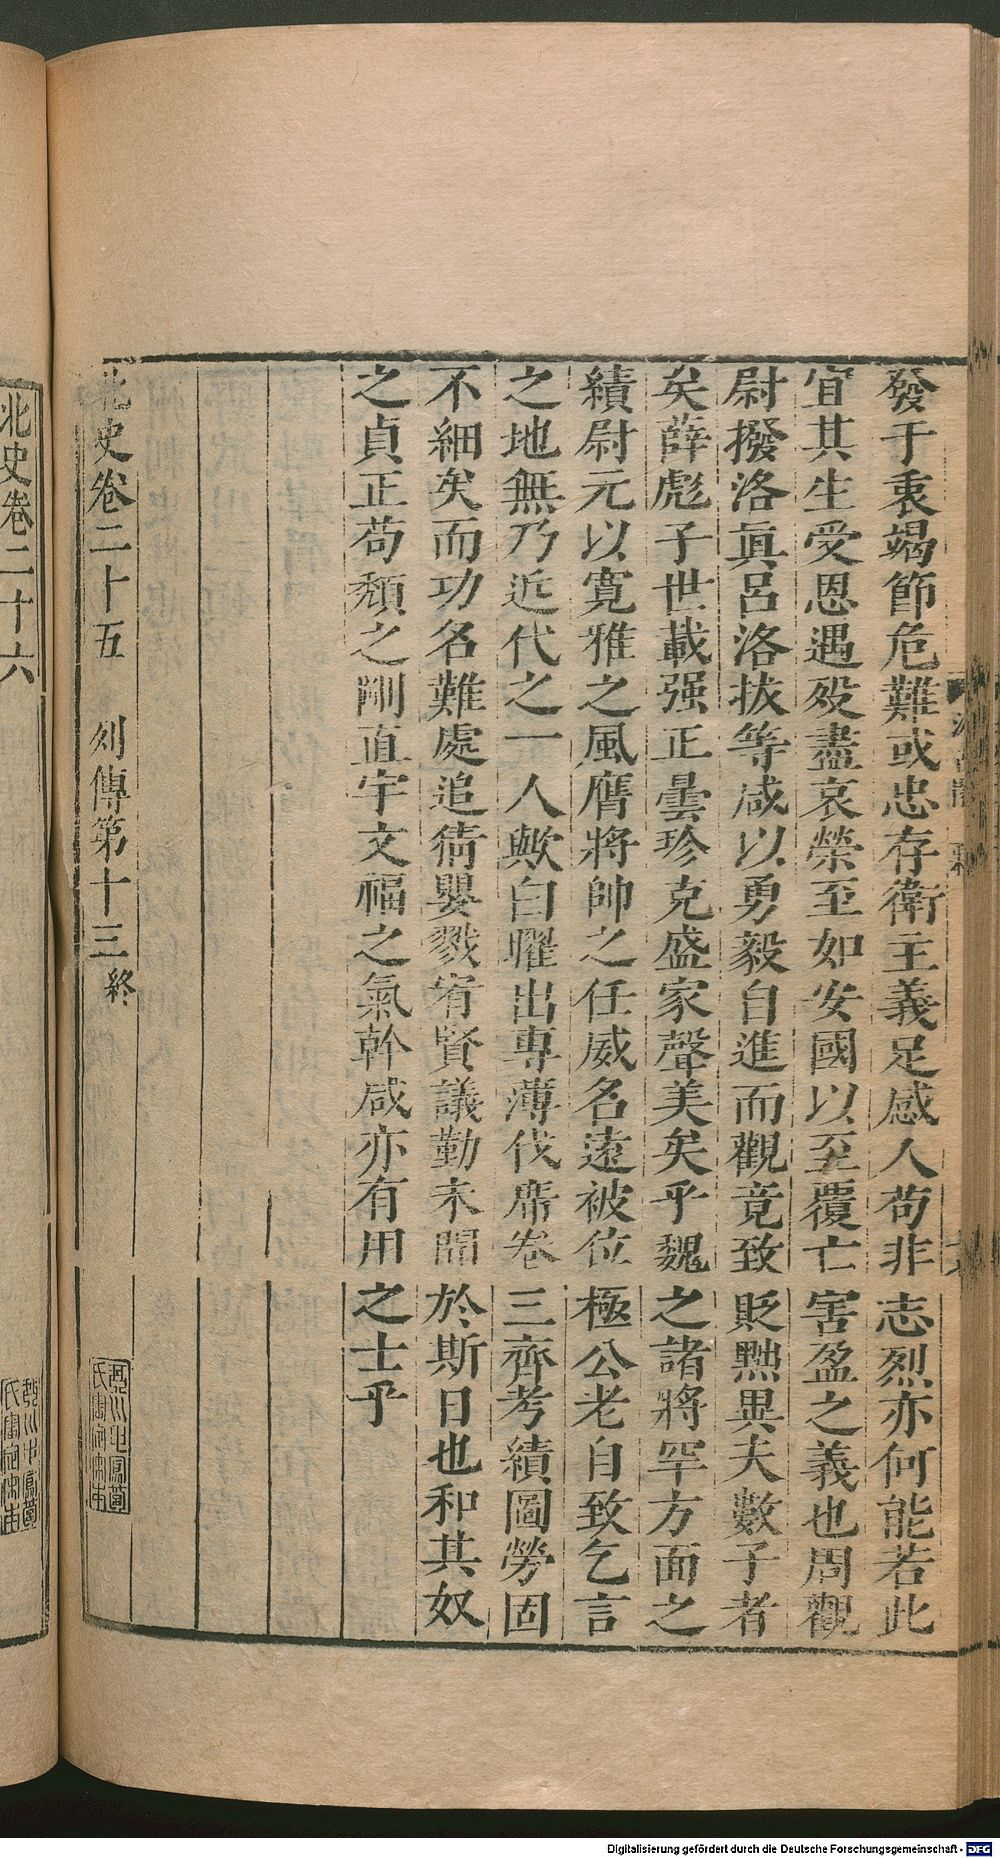 發于衷竭節危難或忠存衛主義足感人苟非志烈亦何能若此
宜其生受恩遇歿盡哀榮至如安國以至覆亡害盈之義也周觀
尉撥洛眞呂洛拔等咸以勇毅自進而觀竟致貶黜異夫數子者
矣薛彪子世載强正曇珍克盛家聲美矣乎魏之諸將罕方面之
績尉元以寛雅之風膺將帥之任威名遠被位極公老自致乞言
之地無乃近代之一人歟白曜出專薄伐席卷三齊考績圖勞固
不細矣而功名難處追猜嬰戮宥賢議勤未聞於斯日也和其奴
之貞正苟頽之剛直宇文福之氣幹咸亦有用之士乎
北史卷二十五 列傳第十三終
北史卷二十六
Digitalisierung gefördert durch die Deutsche Forschungsgemeinschaft - DFG